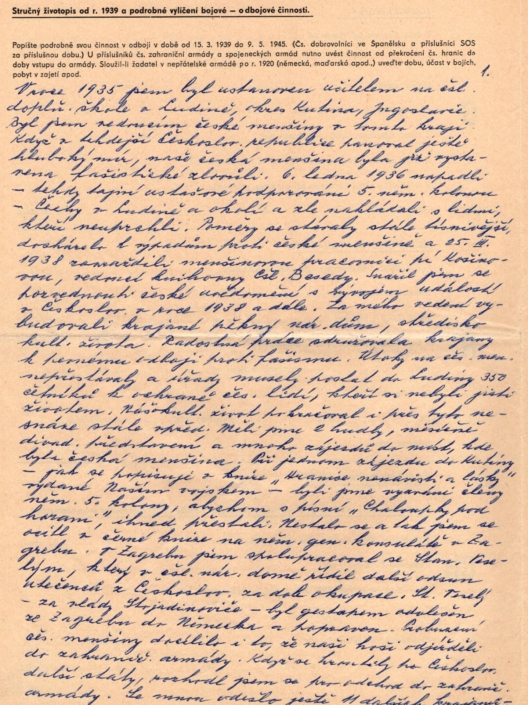 Stručný životopis od r. 1939 a podrobné vylíčení bojové – odbojové činnosti.
Popište podrobně svou činnost v odboji v době od 15. 3. 1939 do 9. 5. 1945. (Čs. dobrovolníci ve Španělsku a příslušníci SOS
za příslušnou dobu.) U příslušníků čs. zahraniční armády a spojeneckých armád nutno uvést činnost od překročení čs. hranic do
doby vstupu do armády. Sloužil-li žadatel v nepřátelské armádě po r. 1920 (německá, maďarská apod.,) uveďte dobu, účast v bojích,
pobyt v zajetí apod.
1.
V roce 1935 jsem byl ustanoven učitelem na čsl.
doplň. škole v Ludině, okres Kutina, Jugoslavie.
Byl jsem vedoucím české menšiny v tomto kraji.
Když v tehdejší Českoslov. republice panoval ještě
hluboký mír, naše česká menšina byla již vysta-
vena fašistické zlovůli. 6. ledna 1936 napadli
– tehdy tajní ustašové podporování 5. něm. kolonou
– Čechy v Ludině a okolí a zle nakládali s lidmi,
kteří neuprchli. Poměry se stávaly stále tísnivější,
docházelo k výpadům proti české menšině a 25. III.
1938 zavraždili menšinovou pracovnici pí
vou, vedoucí knihovny Čsl. Besedy. Snažil jsem se
pozvednouti české uvědomění s vývojem událostí
v Českoslov. v roce 1938 a dále. Za mého vedení vy-
budovali krajané pěkný nár. dům, středisko
kult. života. Radostná práce sdružovala krajany
k pevnému odboji proti fašismu. Útoky na čes. men.
nepřestávaly a úřady musely poslat do Ludiny 350
četníků k ochraně čes. lidí, kteří si nebyli jisti
životem. Náš kult. život pokračoval i přes tyto ne-
snáze stále vpřed. Měli jsme 2 hudby, měsíčně
divad. představení a mnoho zájezdů do míst, kde
byla česká menšina. Při jednom zájezdu do Kutiny
– jak se popisuje v knize „Hranice nenávisti a lásky"
vydané Naším vojskem – byli jsme vyzváni členy
něm. 5. kolony, abychom s písní „Chaloupky pod
horami", ihned přestali. Nestalo se a tak jsem se
ocitl v černé knize na něm. gen. konsulátě v Za-
grebu. V Zagrebu jsem spolupracoval se Stan. Vese-
lým, který v čsl. nár. domě řídil další odsun
utečenců z Českoslov. za dob okupace. St. Veselý
– za vlády Stojadinoviće – byl gestapem odvlečen
ze Zagrebu do Německa a popraven. Probuzení
čes. menšiny docílilo i to, že naši hoši odjížděli
do zahranič. armády. Když se hroutily po Českoslov.
další státy, rozhodl jsem se pro odchod do zahranič.
armády. Se mnou odešlo ještě 11 dalších